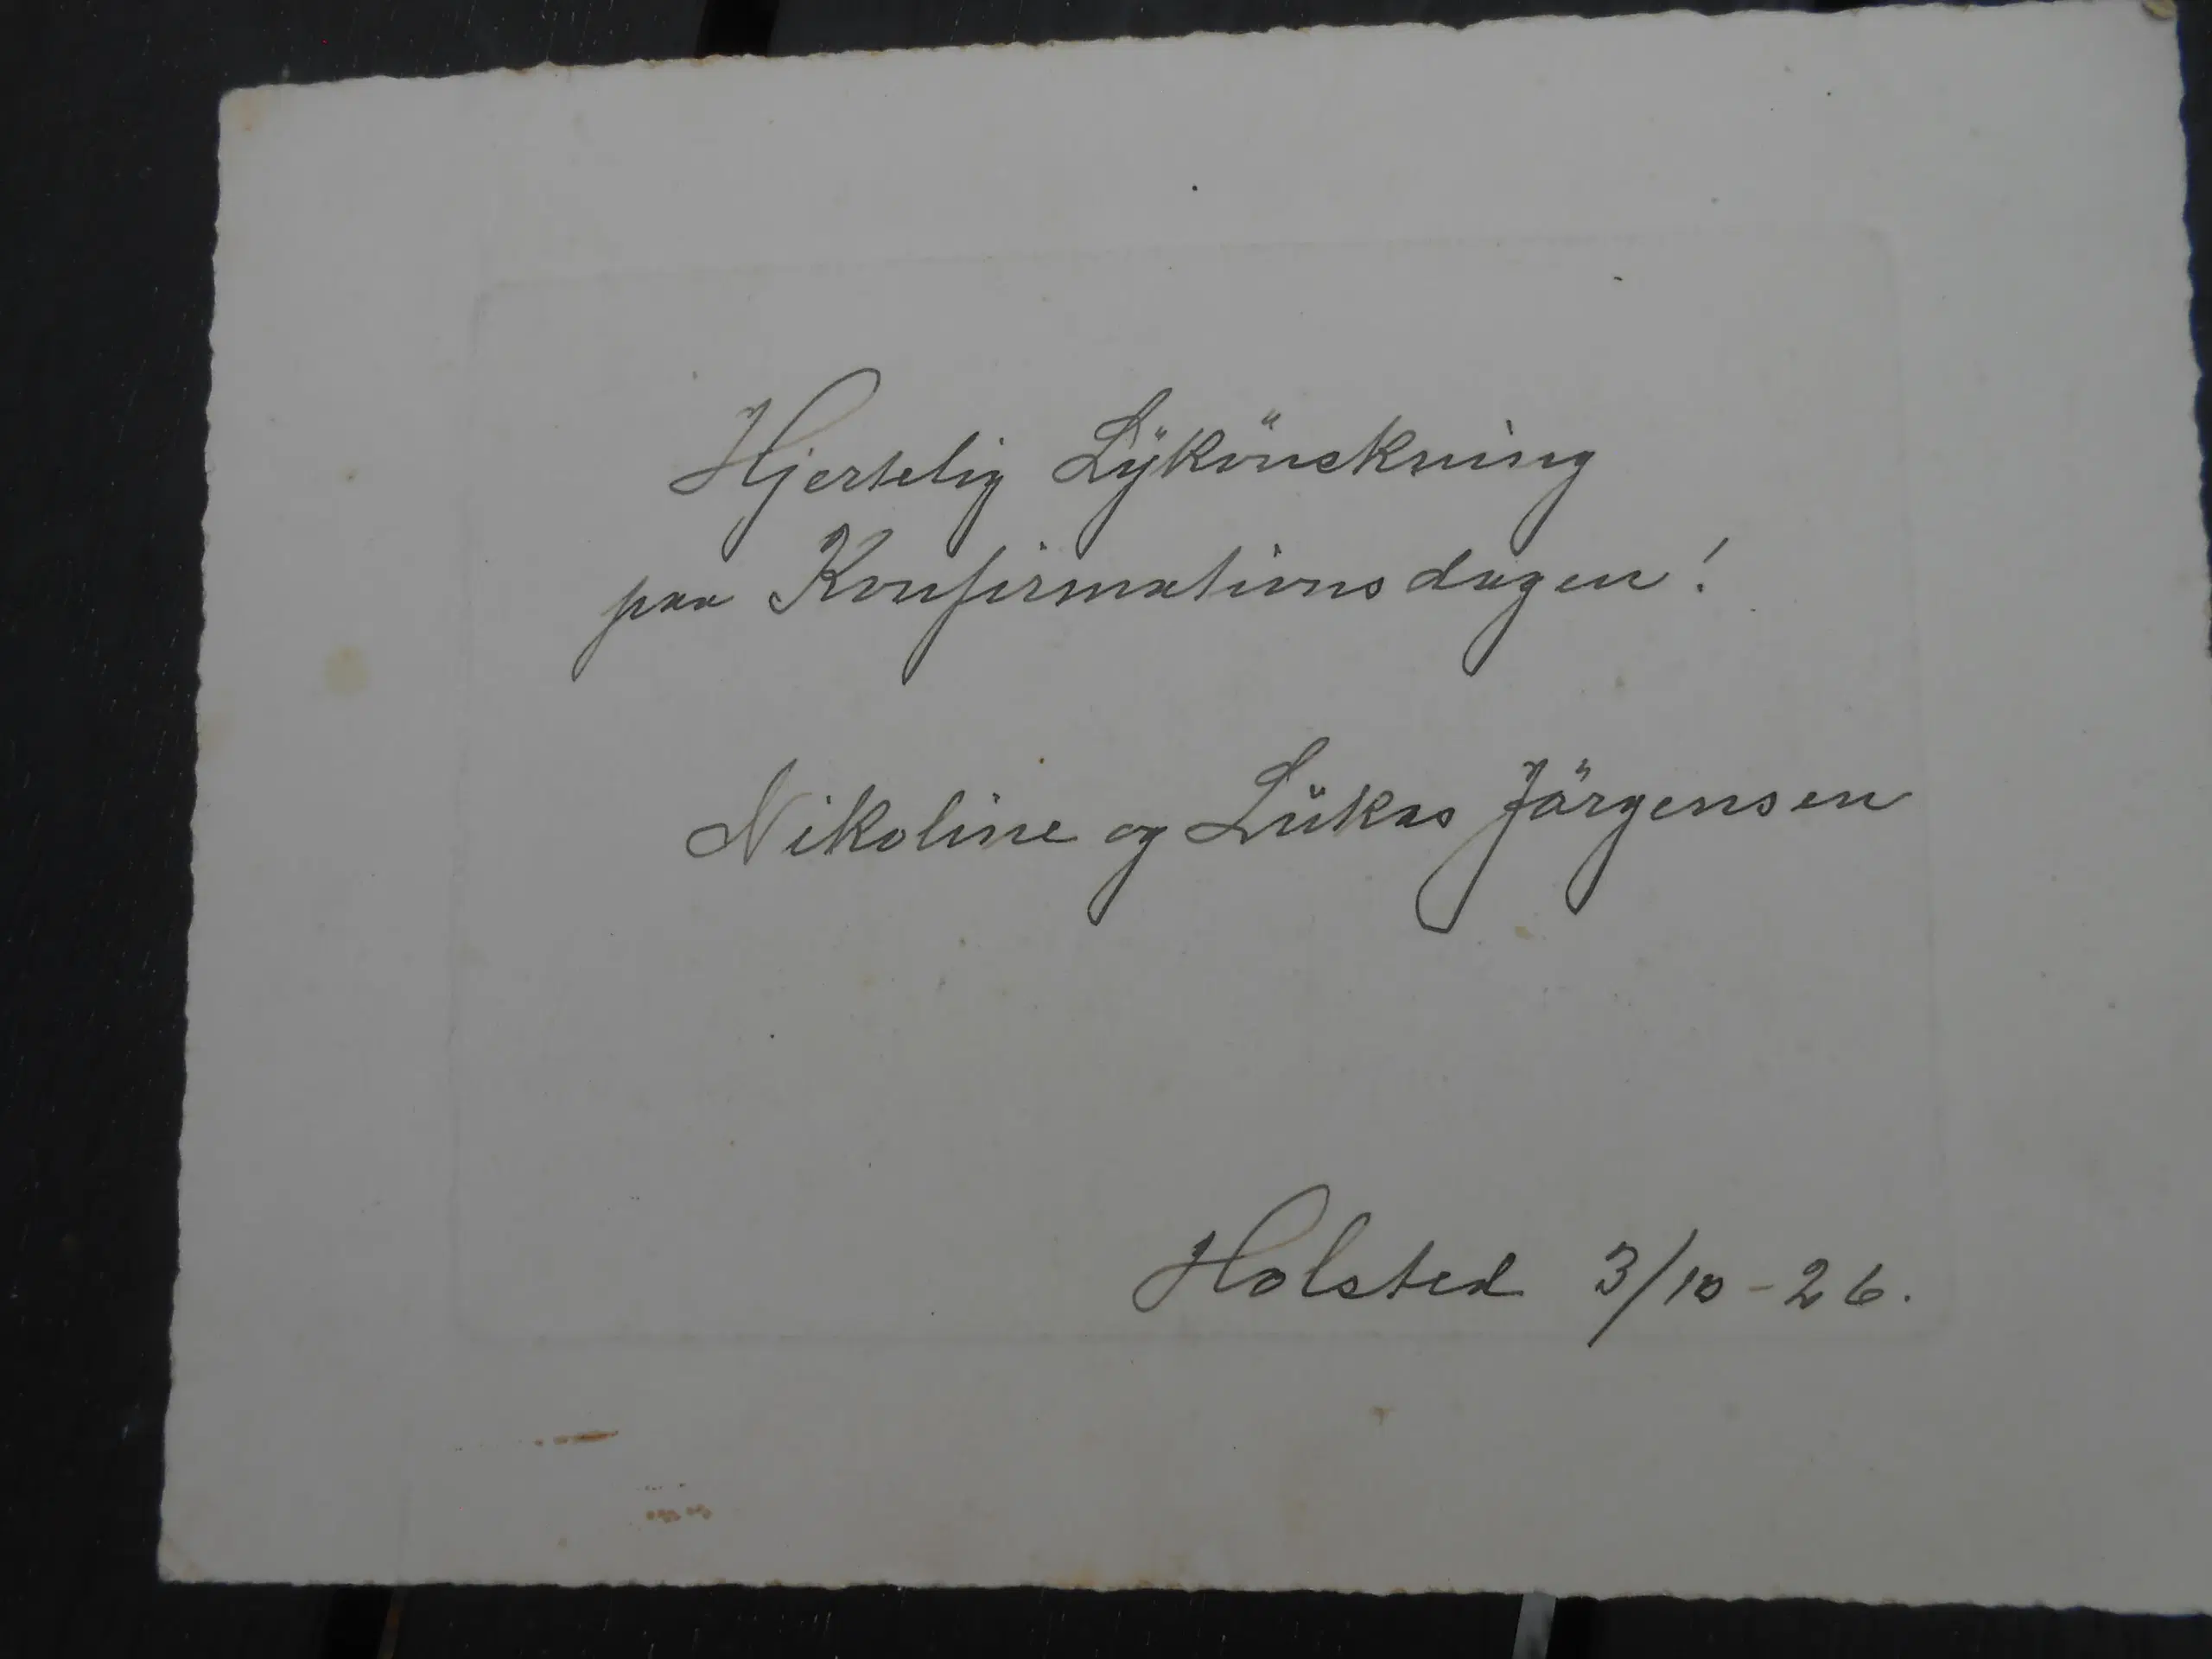 Hjertelig Lÿkönskning
paa Konfirmationsdagen!
Nikoline og Lükas Jörgensen
Holsted 3/10-26.